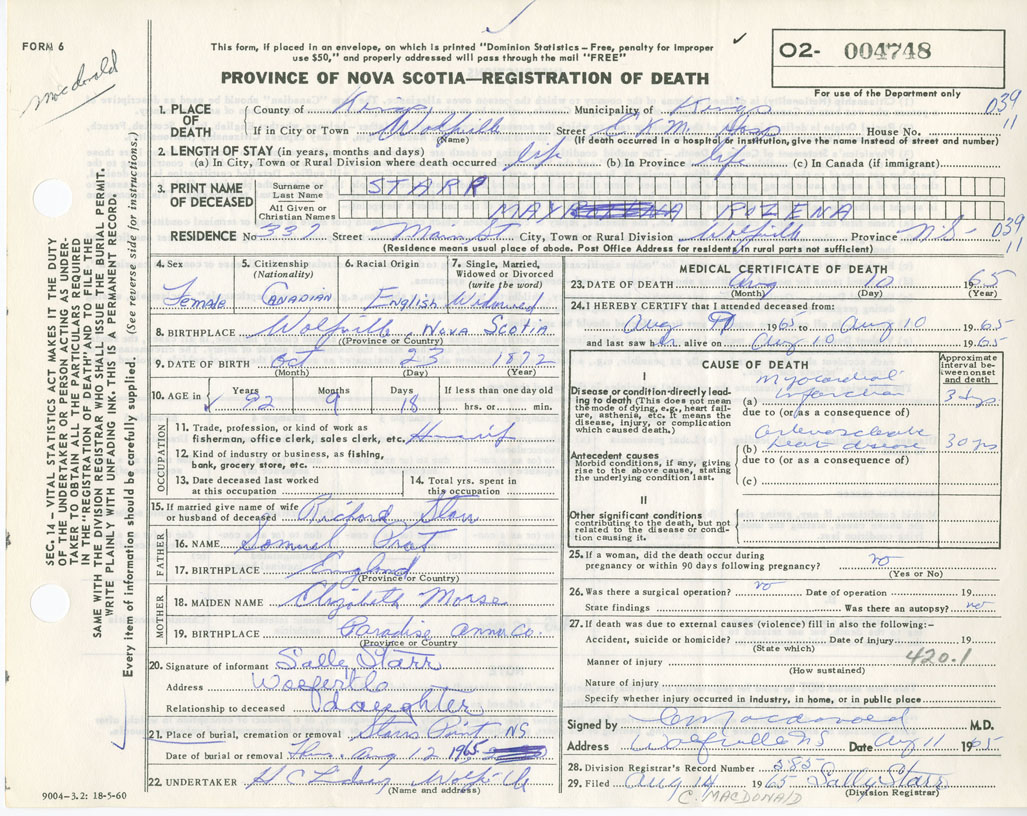 FORM 6
macdonald
This form, if placed in an envelope, on which is printed "Dominion Statistics—Free, penalty for improper
use $50," and properly addressed will pass through the mail "FREE"
PROVINCE OF NOVA SCOTIA—REGISTRATION OF DEATH
O2- 004748
For use of the Department only
039
11
1. PLACE OF DEATH
County of Kings Municipality of Kings
If in City or Town Wolfville Street E.K.M. Hosp House No.
(Name) (If death occurred in a hospital or institution, give the name instead of street and number)
2. LENGTH OF STAY (in years, months and days)
(a) In City, Town or Rural Division where death occurred life (b) In Province life (c) In Canada (if immigrant)
3. PRINT NAME OF DECEASED
Surname or Last Name STARR
All Given or Christian Names MAY ROZENA
RESIDENCE No 332 Street Main St. City, Town or Rural Division Wolfville Province N.S- 039
11
(Residence means usual place of abode. Post Office Address for residents in rural parts not sufficient)
4. Sex
Female
5. Citizenship (Nationality)
Canadian
6. Racial Origin
English
7. Single, Married, Widowed or Divorced (write the word)
Widowed
8. BIRTHPLACE Wolfville, Nova Scotia
(Province or Country)
9. DATE OF BIRTH Oct 23 1872
(Month) (Day) (Year)
10. AGE in Years 92 Months 9 Days 18 If less than one day old
hrs. or min.
OCCUPATION
11. Trade, profession, or kind of work as fisherman, office clerk, sales clerk, etc.
12. Kind of industry or business, as fishing, bank, grocery store, etc.
13. Date deceased last worked at this occupation
14. Total yrs. spent in this occupation
15. If married give name of wife or husband of deceased Richard Starr
FATHER
16. NAME Samuel Prat
17. BIRTHPLACE England
(Province or Country)
MOTHER
18. MAIDEN NAME Elizabeth Morse
19. BIRTHPLACE Paradise Anna. Co.
(Province or Country)
20. Signature of informant Sally Starr
Address Wolfville
Relationship to deceased daughter
21. Place of burial, cremation or removal Starrs Point NS
Date of burial or removal Thurs. Aug 12 1965
22. UNDERTAKER Wolfville
(Name and address)
9004-3.2: 18-5-60
MEDICAL CERTIFICATE OF DEATH
23. DATE OF DEATH Aug 10 1965
(Month) (Day) (Year)
24. I HEREBY CERTIFY that I attended deceased from:
Aug 1965 to Aug 10 1965
and last saw her alive on Aug 10 1965
CAUSE OF DEATH
Approximate interval between onset and death
I
Disease or condition directly leading to death (This does not mean the mode of dying, e.g., heart failure, asthenia, etc. It means the disease, injury, or complication which caused death.
(a) Myocardial infarction 3 dys.
due to (or as a consequence of)
Antecedent causes
Morbid conditions, if any, giving rise to the above cause, stating the underlying condition last.
(b) Arteriosclerotic heart disease 30 yrs
due to (or as a consequence of)
(c)
II
Other significant conditions
contributing to the death, but not related to the disease or condition causing it.
25. If a woman, did the death occur during
pregnancy or within 90 days following pregnancy? no
(Yes or No)
26. Was there a surgical operation? no Date of operation 19
State findings Was there an autopsy? no
27. If death was due to external causes (violence) fill in also the following:—
Accident, suicide or homicide? Date of injury 19
(State which)
420.1
Manner of injury
(How sustained)
Nature of injury
Specify whether injury occurred in industry, in home, or in public place
Signed by C Macdonald M.D.
Address Wolfville NS Date Aug 11 1965
28. Division Registrar's Record Number 585
29. Filed Aug 14 1965 Sally Starr
(Division Registrar)
C. MACDONALD
SEC. 14 – VITAL STATISTICS ACT MAKES IT THE DUTY
OF THE UNDERTAKER OR PERSON ACTING AS UNDER-
TAKER TO OBTAIN ALL THE PARTICULARS REQUIRED
IN THE "REGISTRATION OF DEATH" AND TO FILE THE
SAME WITH THE DIVISION REGISTRAR WHO SHALL ISSUE THE BURIAL PERMIT.
WRITE PLAINLY WITH UNFADING INK. THIS IS A PERMANENT RECORD.
Every item of information should be carefully supplied. (See reverse side for instructions.)